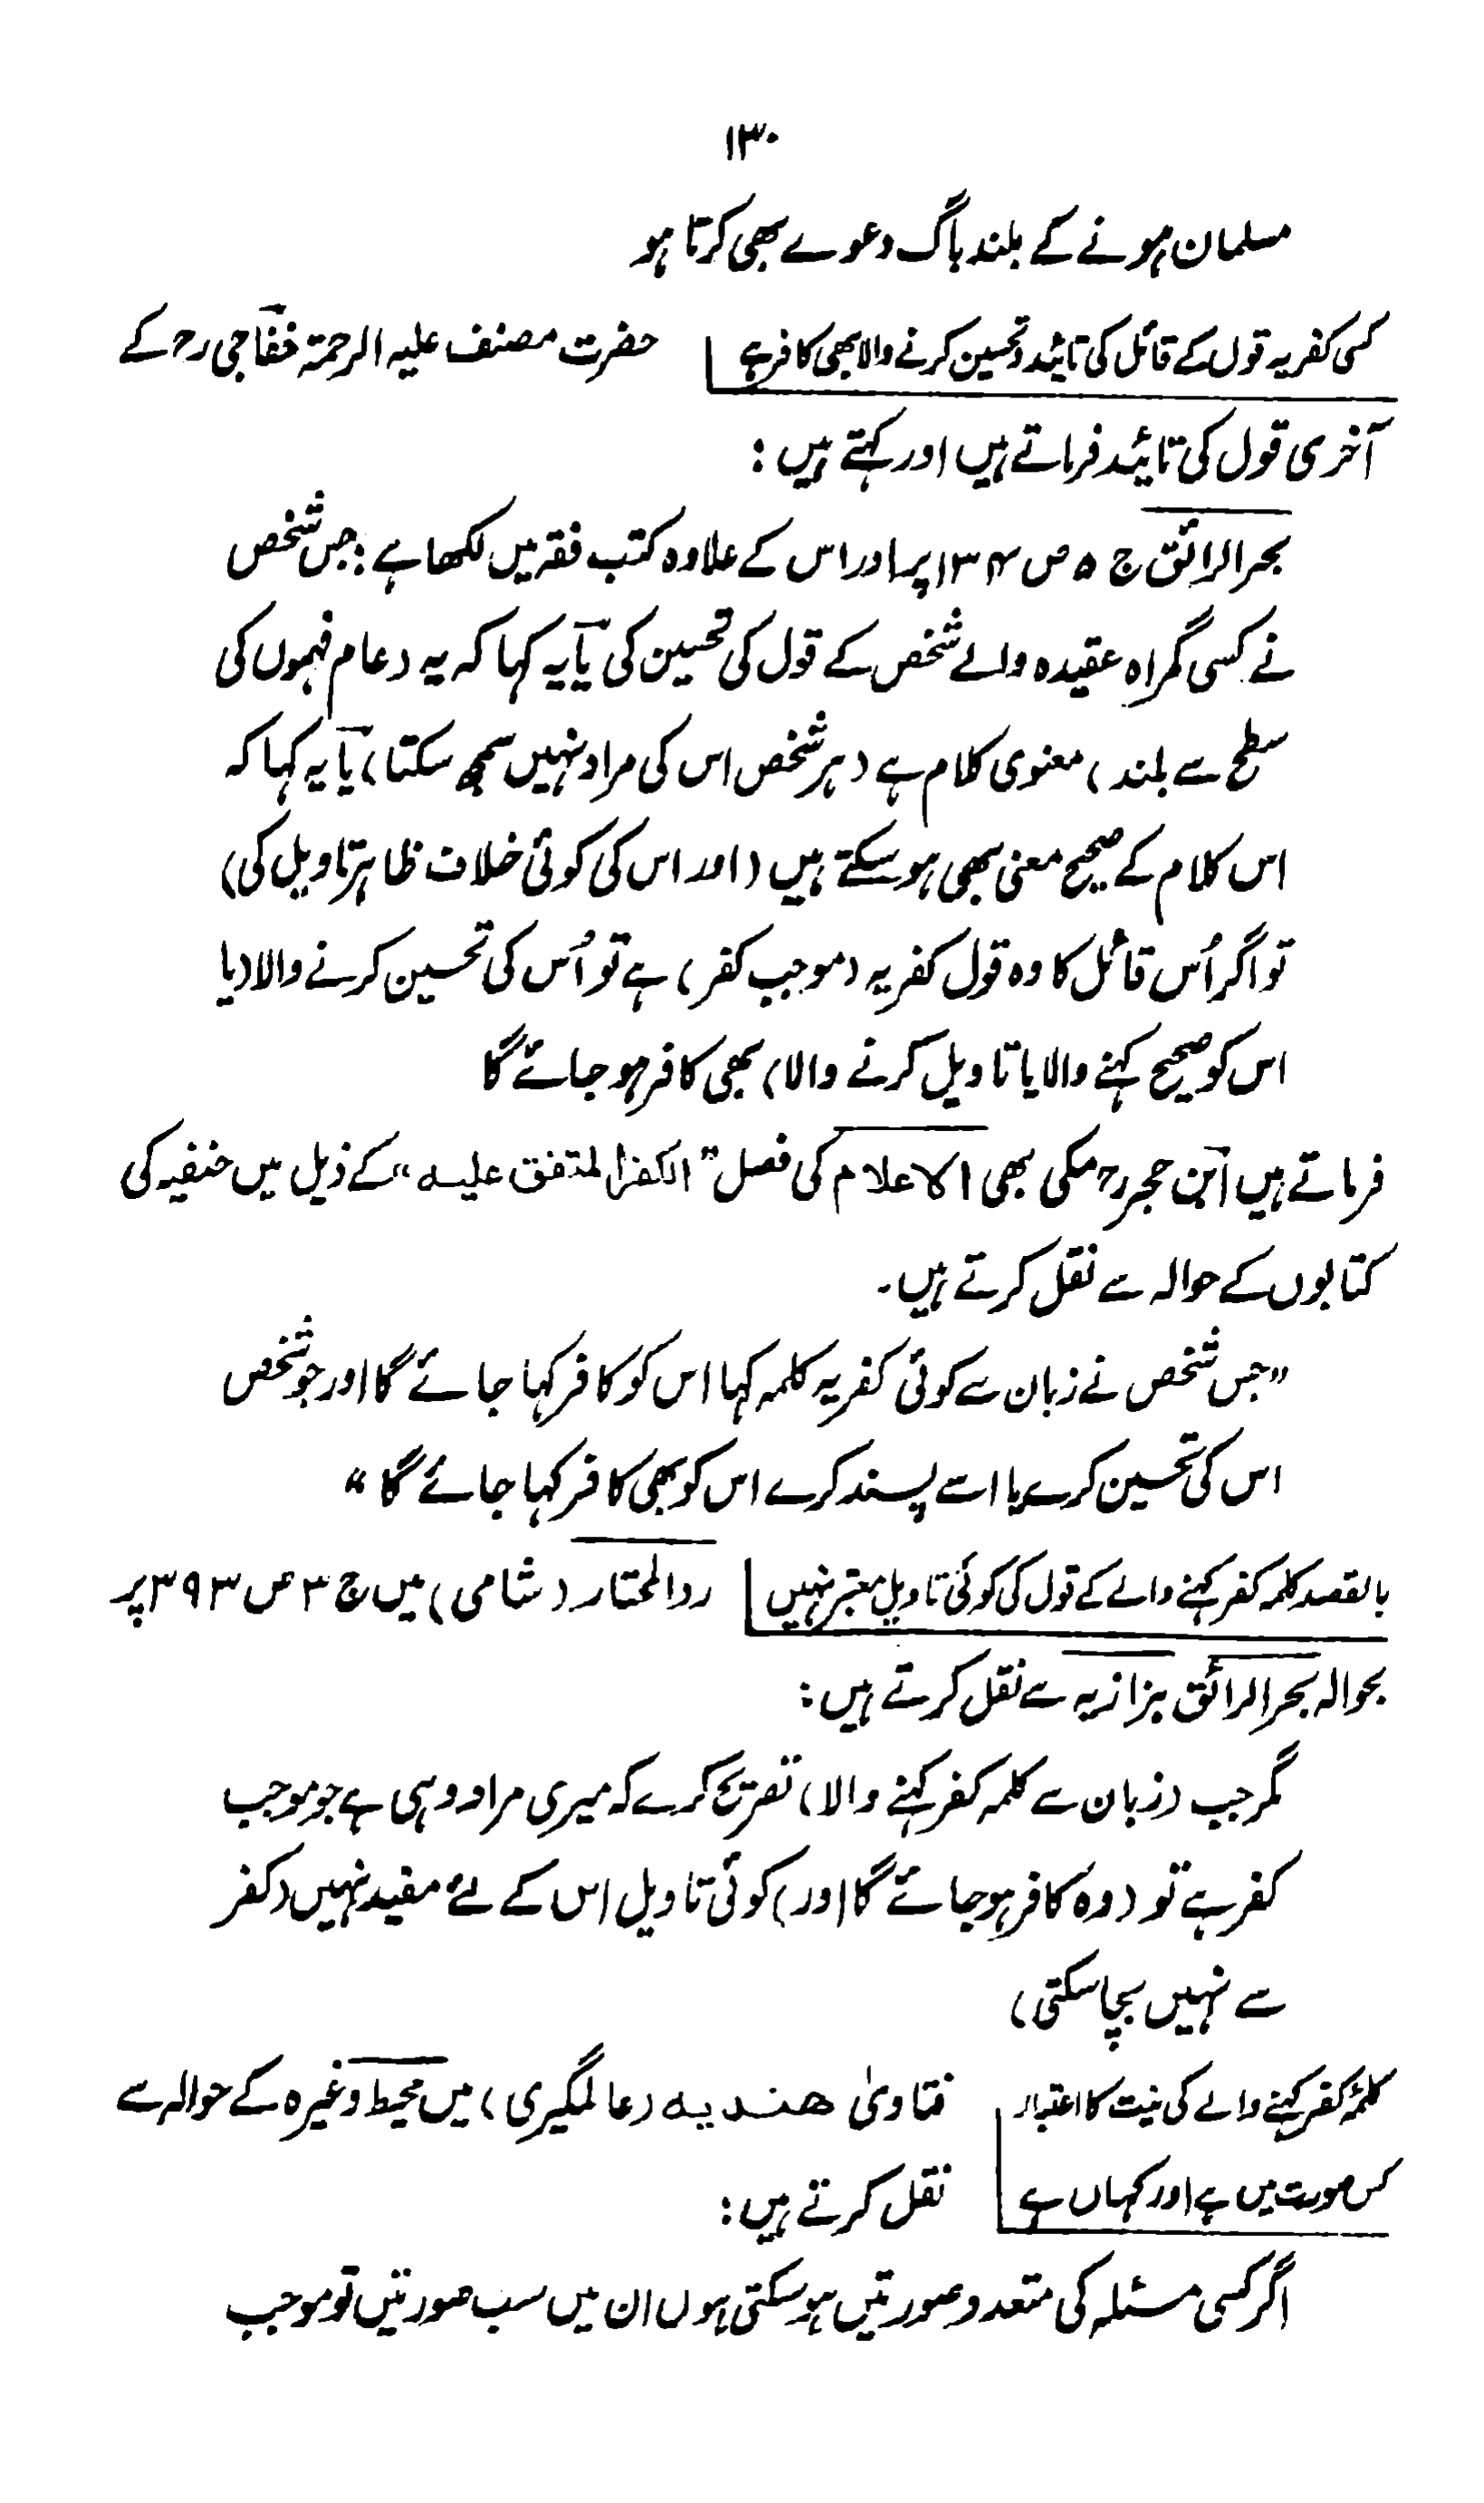 ۱۳۰
مسلمان ہونے کے بلند بانگ دعوے بھی کرتا ہو
کسی کفریہ قول کے قائل کی تائید و تحسین کرنے والا بھی کافر ہے حضرت مصنف علیہ الرحمۃ خفاجی رح کے
آخری قول کی تائید فرماتے ہیں اور کہتے ہیں :
بحر الرائق ج ۵ ص ۱۳۴ پر اور اس کے علاوہ کتب فقہ میں لکھا ہے : جس شخص
نے کسی گمراہ عقیدہ والے شخص کے قول کی تحسین کی یا یہ کہا کہ یہ (عام فہموں کی
سطح سے بلند) معنوی کلام ہے (ہر شخص اس کی مراد نہیں سمجھ سکتا) یا یہ کہا کہ
اس کلام کے صحیح معنی بھی ہو سکتے ہیں (اور اس کی کوئی خلاف ظاہر تاویل کی)
تو اگر اُس قائل کا وہ قول کفریہ (موجب کفر) ہے تو اُس کی تحسین کرنے والا (یا
اس کو صحیح کہنے والا یا تاویل کرنے والا) بھی کافر ہو جائے گا
فرماتے ہیں ابن حجر رح مکی بھی الاعلام کی فصل "الکفر المتفق علیہ" کے ذیل میں حنفیہ کی
کتابوں کے حوالہ سے نقل کرتے ہیں۔
"جس شخص نے زبان سے کوئی کفریہ کلمہ کہا اس کو کافر کہا جائے گا اور جو شخص
اس کی تحسین کرے یا اسے پسند کرے اس کو بھی کافر کہا جائے گا"
بالقصد کلمہ کفر کہنے والے کے قول کی کوئی تاویل معتبر نہیں رد المحتار (شامی) میں ج ۳ ص ۳۹۳ پر
بحوالہ بحر الرائق بزازیہ سے نقل کرتے ہیں :
مگر جب (زبان سے کلمہ کفر کہنے والا) تصریح کرے کہ میری مراد وہی ہے جو موجب
کفر ہے تو (وہ کافر ہو جائے گا اور) کوئی تاویل اس کے لئے مفید نہیں (کفر
سے نہیں بچا سکتی)
کلمۂ کفر کہنے والے کی نیت کا اعتبار فتاویٰ ھندیہ (عالمگیری) میں محیط وغیرہ کے حوالہ سے
کس صورت میں ہے اور کہاں ہے نقل کرتے ہیں :
اگر کسی مسئلہ کی متعدد صورتیں ہو سکتی ہوں ان میں سب صورتیں تو موجب